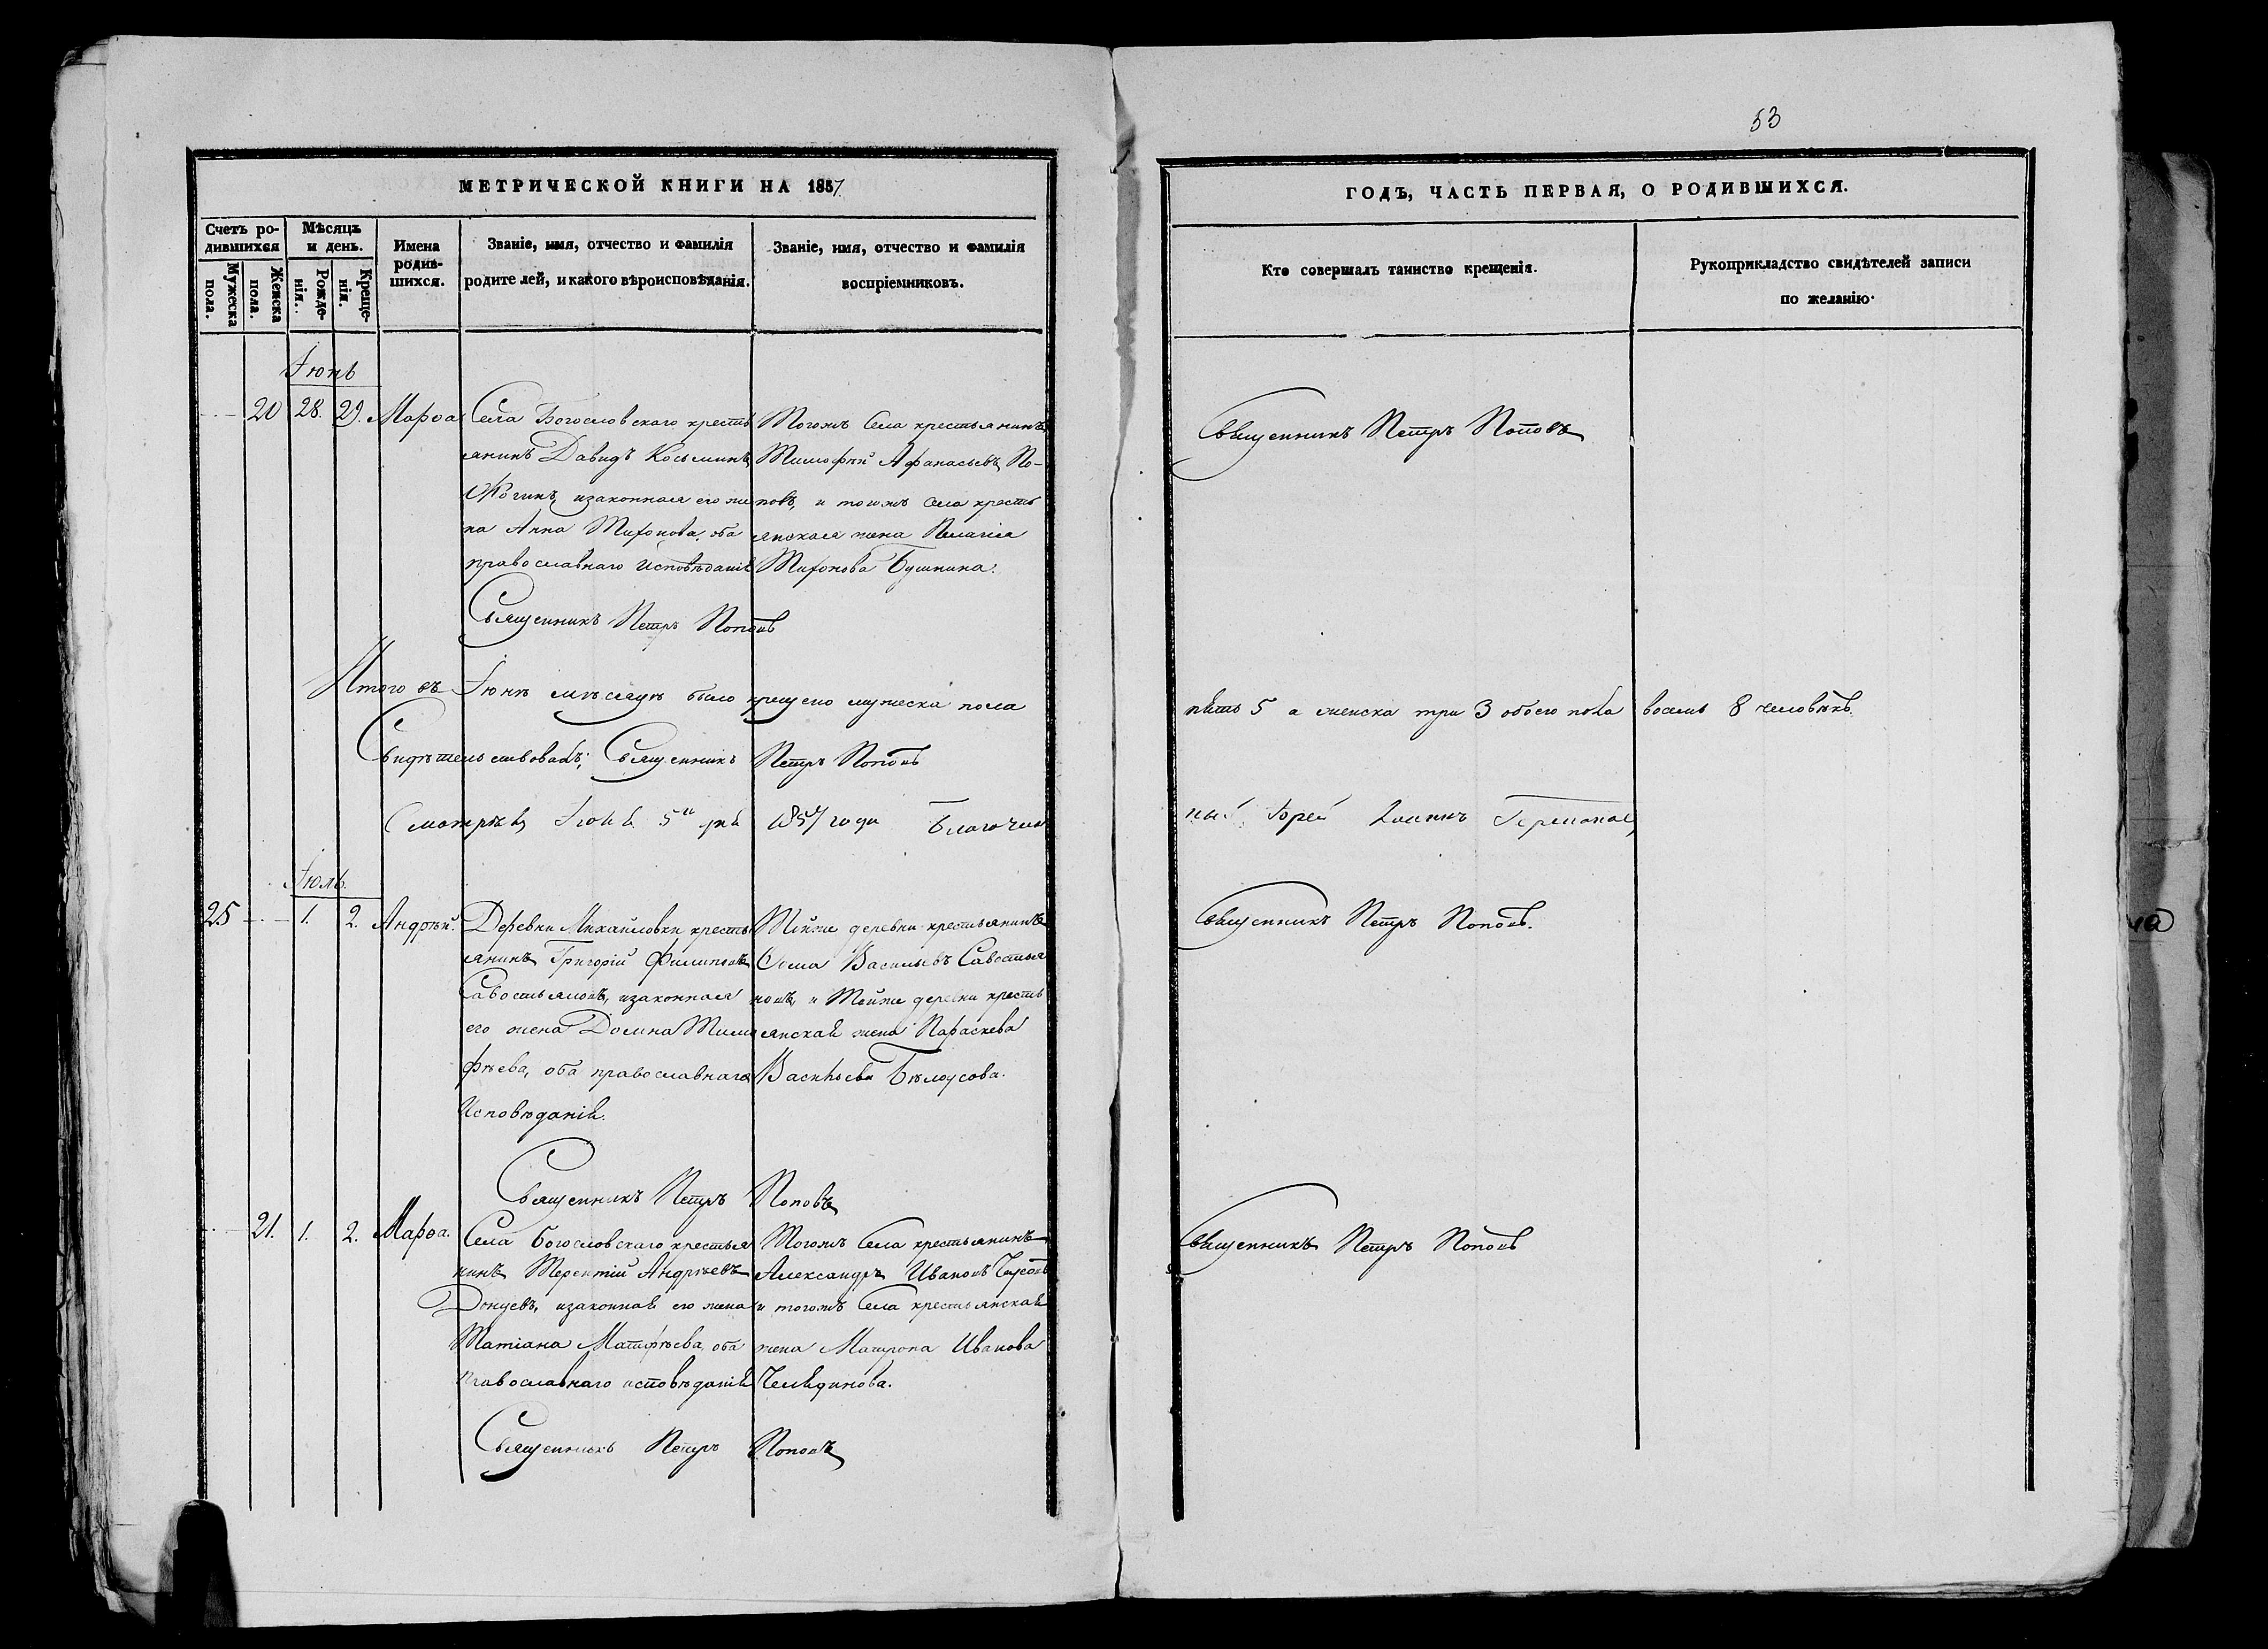 53
МЕТРИЧЕСКОЙ КНИГИ НА 1857
ГОДЪ, ЧАСТЬ ПЕРВАЯ, О РОДИВШИХСЯ.
Счетъ ро-
дившихся
Мужеска
пола.
Женска
пола.
Мѣсяцъ
и день.
Рожде-
нія.
Креще-
нія.
Имена
родив-
шихся.
Званіе, имя, отчество и фамилія
родителей, и какого вѣроисповѣданія.
Званіе, имя, отчество и фамилія
воспріемниковъ.
Кто совершалъ таинство крещенія.
Рукоприкладство свидѣтелей записи
по желанію.
Іюнь
20 28. 29. Марѳа
Села Богословскаго кресть
янинъ Давидъ Косьминъ
изаконная его же
на Анна Миронова, оба
православнаго исповѣданія
Тогожъ Села крестьянинъ
Тимофѣй Афанасьевъ По-
повъ, и тогожъ Села кресть
янская жена Пелагія
Миронова Бушнина.
Священникъ Петръ Поповъ
Священникъ Петръ Поповъ
Итого въ Іюнѣ мѣсяцѣ было крещено мужеска пола
пять 5 а женска три 3 обоего пола восемь 8 человѣкъ.
Свидѣтельствовалъ: Священникъ Петръ Поповъ
Смотрѣлъ 5 дня 1857 года Благочин
ный Іерей Іоаннъ
Іюль.
25 1. 2. Андрѣй.
Деревни Михайловки кресть
янинъ Григорій Филиповъ
Савостьяновъ, изаконная
его жена Домна Тимо
фѣева, оба православнаго
Исповѣданія.
Тойже деревни крестьянинъ
Ѳома Васильевъ Савостья
новъ, и Тойже деревни кресть
янская жена Параскева
Васильева Бѣлоусова.
Священникъ Петръ Поповъ.
Священникъ Петръ Поповъ
21. 1. 2. Марѳа.
Села Богословскаго крестья
нинъ Терентій Андрѣевъ
Донцевъ, изаконная его жена
Татіана Матфѣева, оба
православнаго исповѣданія
Тогожъ Села крестьянинъ
Александръ Ивановъ
и тогожъ Села крестьянская
жена Матрона Иванова
Челядинова.
Священникъ Петръ Поповъ
Священникъ Петръ Поповъ